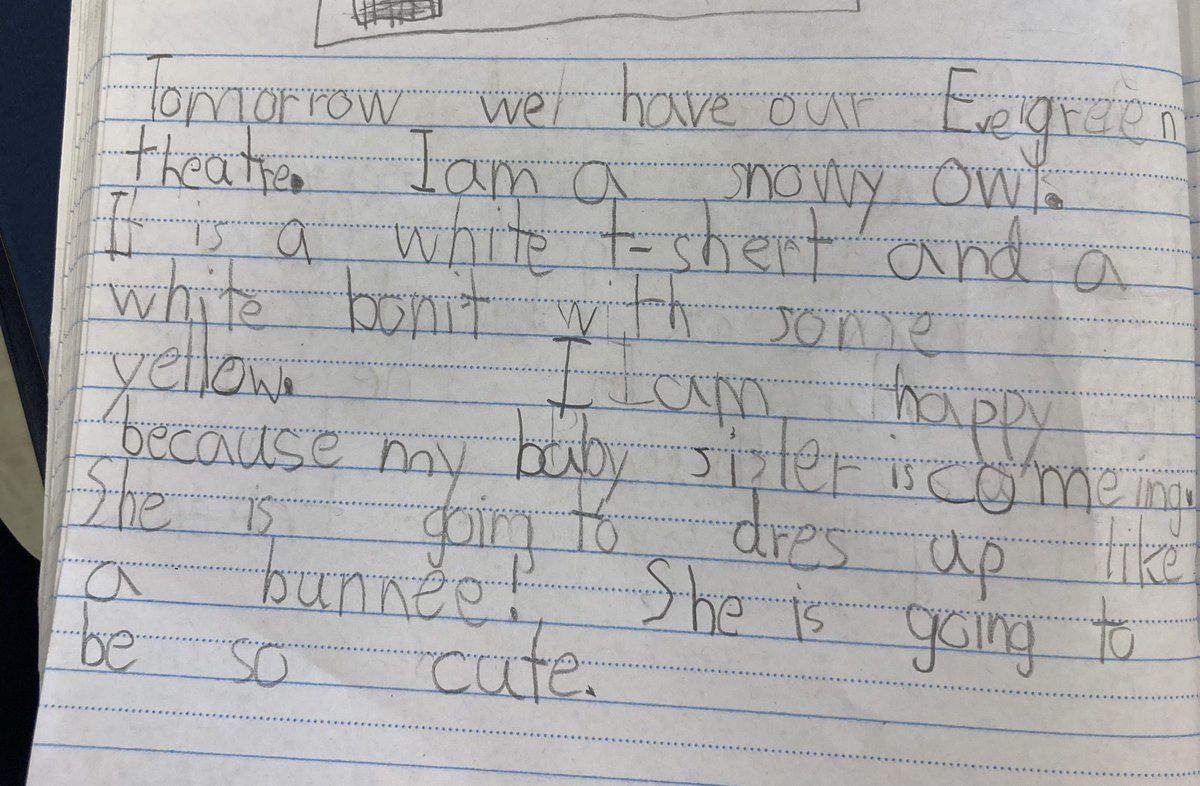 Tomorrow we have our Evergreen
theatre. I am a snowy owl.
It is a white t-shert and a
white bonit with some
yellow. I I am happy
because my baby sister is comeing.
She is going to dres up like
a bunnee! She is going to
be so cute.